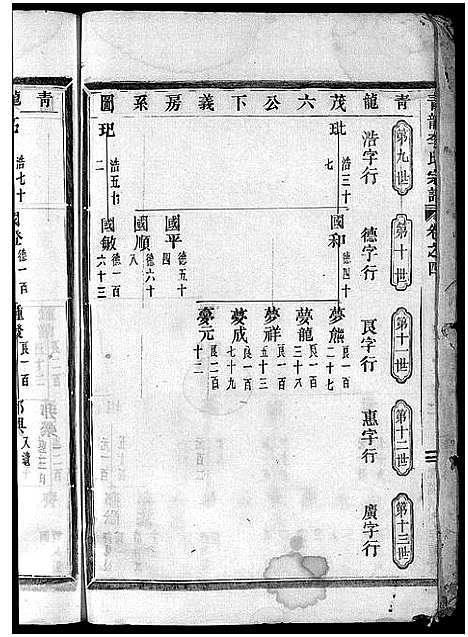 青龍李氏宗譜
卷之四
青龍茂六公下義房系圖
第九世
浩字行
第十世
德字行
第十一世
良字行
第十二世
惠字行
第十三世
廣字行
玭 浩三十七
國和 德四十
夢麟 良一百二十七
夢龍 良一百三十八
夢祥 良一百五十三
夢成 良一百七十九
夢元 良二百十二
國平 德五十四
國順 德六十八
玘 浩五十二
國敏 德一百六十三
青龍
浩七十
德一百
良一百